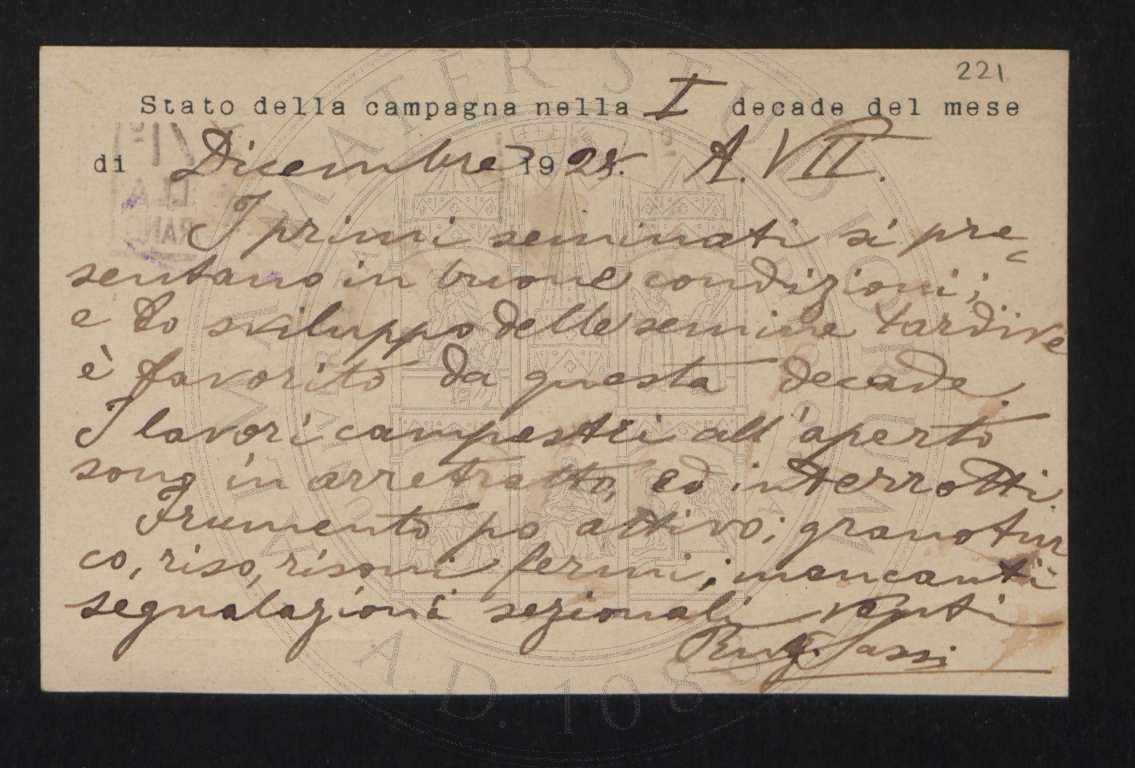 221
Stato della campagna nella I decade del mese
di Dicembre 1928. A. VII.
I primi seminati si pre-
sentano in buone condizioni;
e lo sviluppo delle semine tardive
è favorito da questa decade.
I lavori campestri all'aperto
sono in arretratto, ed interrotti
Frumento po attivo; granotur
co, riso, risoni fermi; mancanti
segnalazioni sezionali venti
Sassi
ALMA MATER STUDIORUM
A.D. 1088